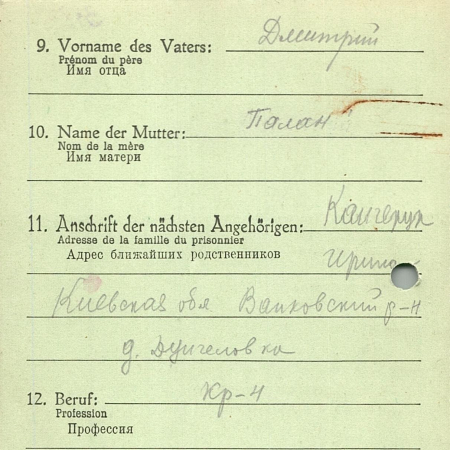 9. Vorname des Vaters: Дмитрий
Prénom du père
Имя отца
10. Name der Mutter: Палан
Nom de la mère
Имя матери
11. Anschrift der nächsten Angehörigen:
Adresse de la famille du prisonnier
Адрес ближайших родственников
Киевская обл р-н
д.
12. Beruf: Хр-н
Profession
Профессия